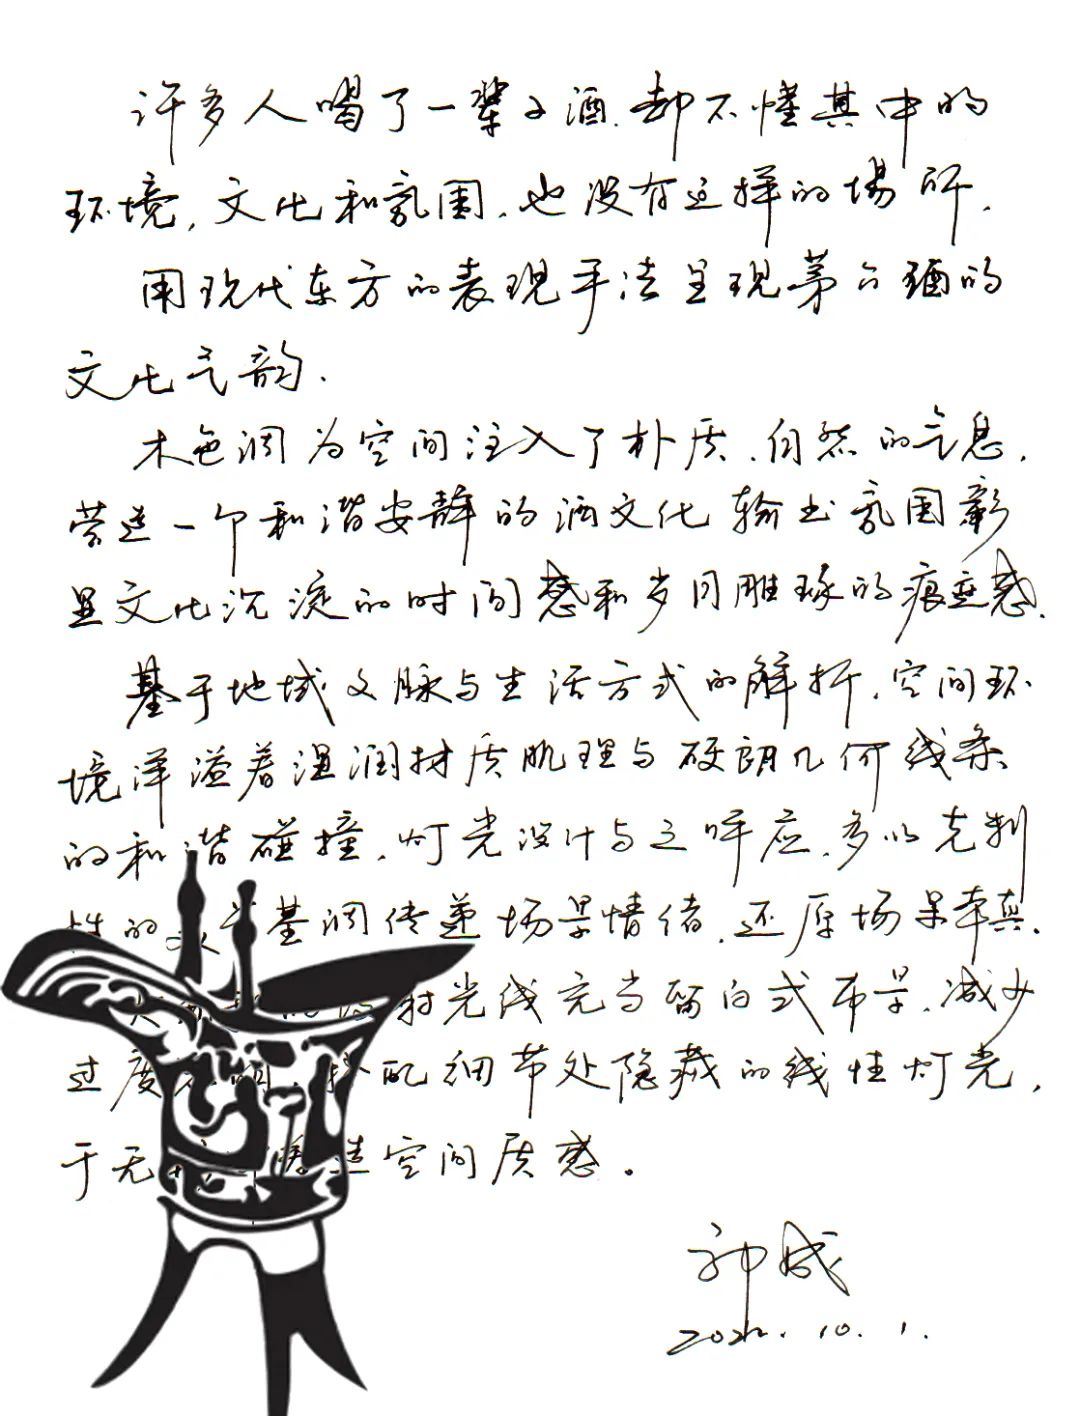 许多人喝了一辈子酒.却不懂其中的
环境,文化和氛围.也没有这样的场所.
用现代东方的表现手法呈现茅台酒的
文化气韵.
木色调为空间注入了朴质.自然的气息.
营造一个和谐安静的酒文化输出氛围彰
显文化沉淀的时间感和岁月雕琢的痕迹感.
基于地域文脉与生活方式的解析.空间环
境洋溢着温润材质肌理与硬朗几何线条
的和谐碰撞.灯光设计与之呼应.多以克制
性的 基调传递场景情绪.还原场景本真.
射光线充当留白式布景.减少
过度 配细节处隐藏的线性灯光,
于无 造空间质感。
2022.10.1.